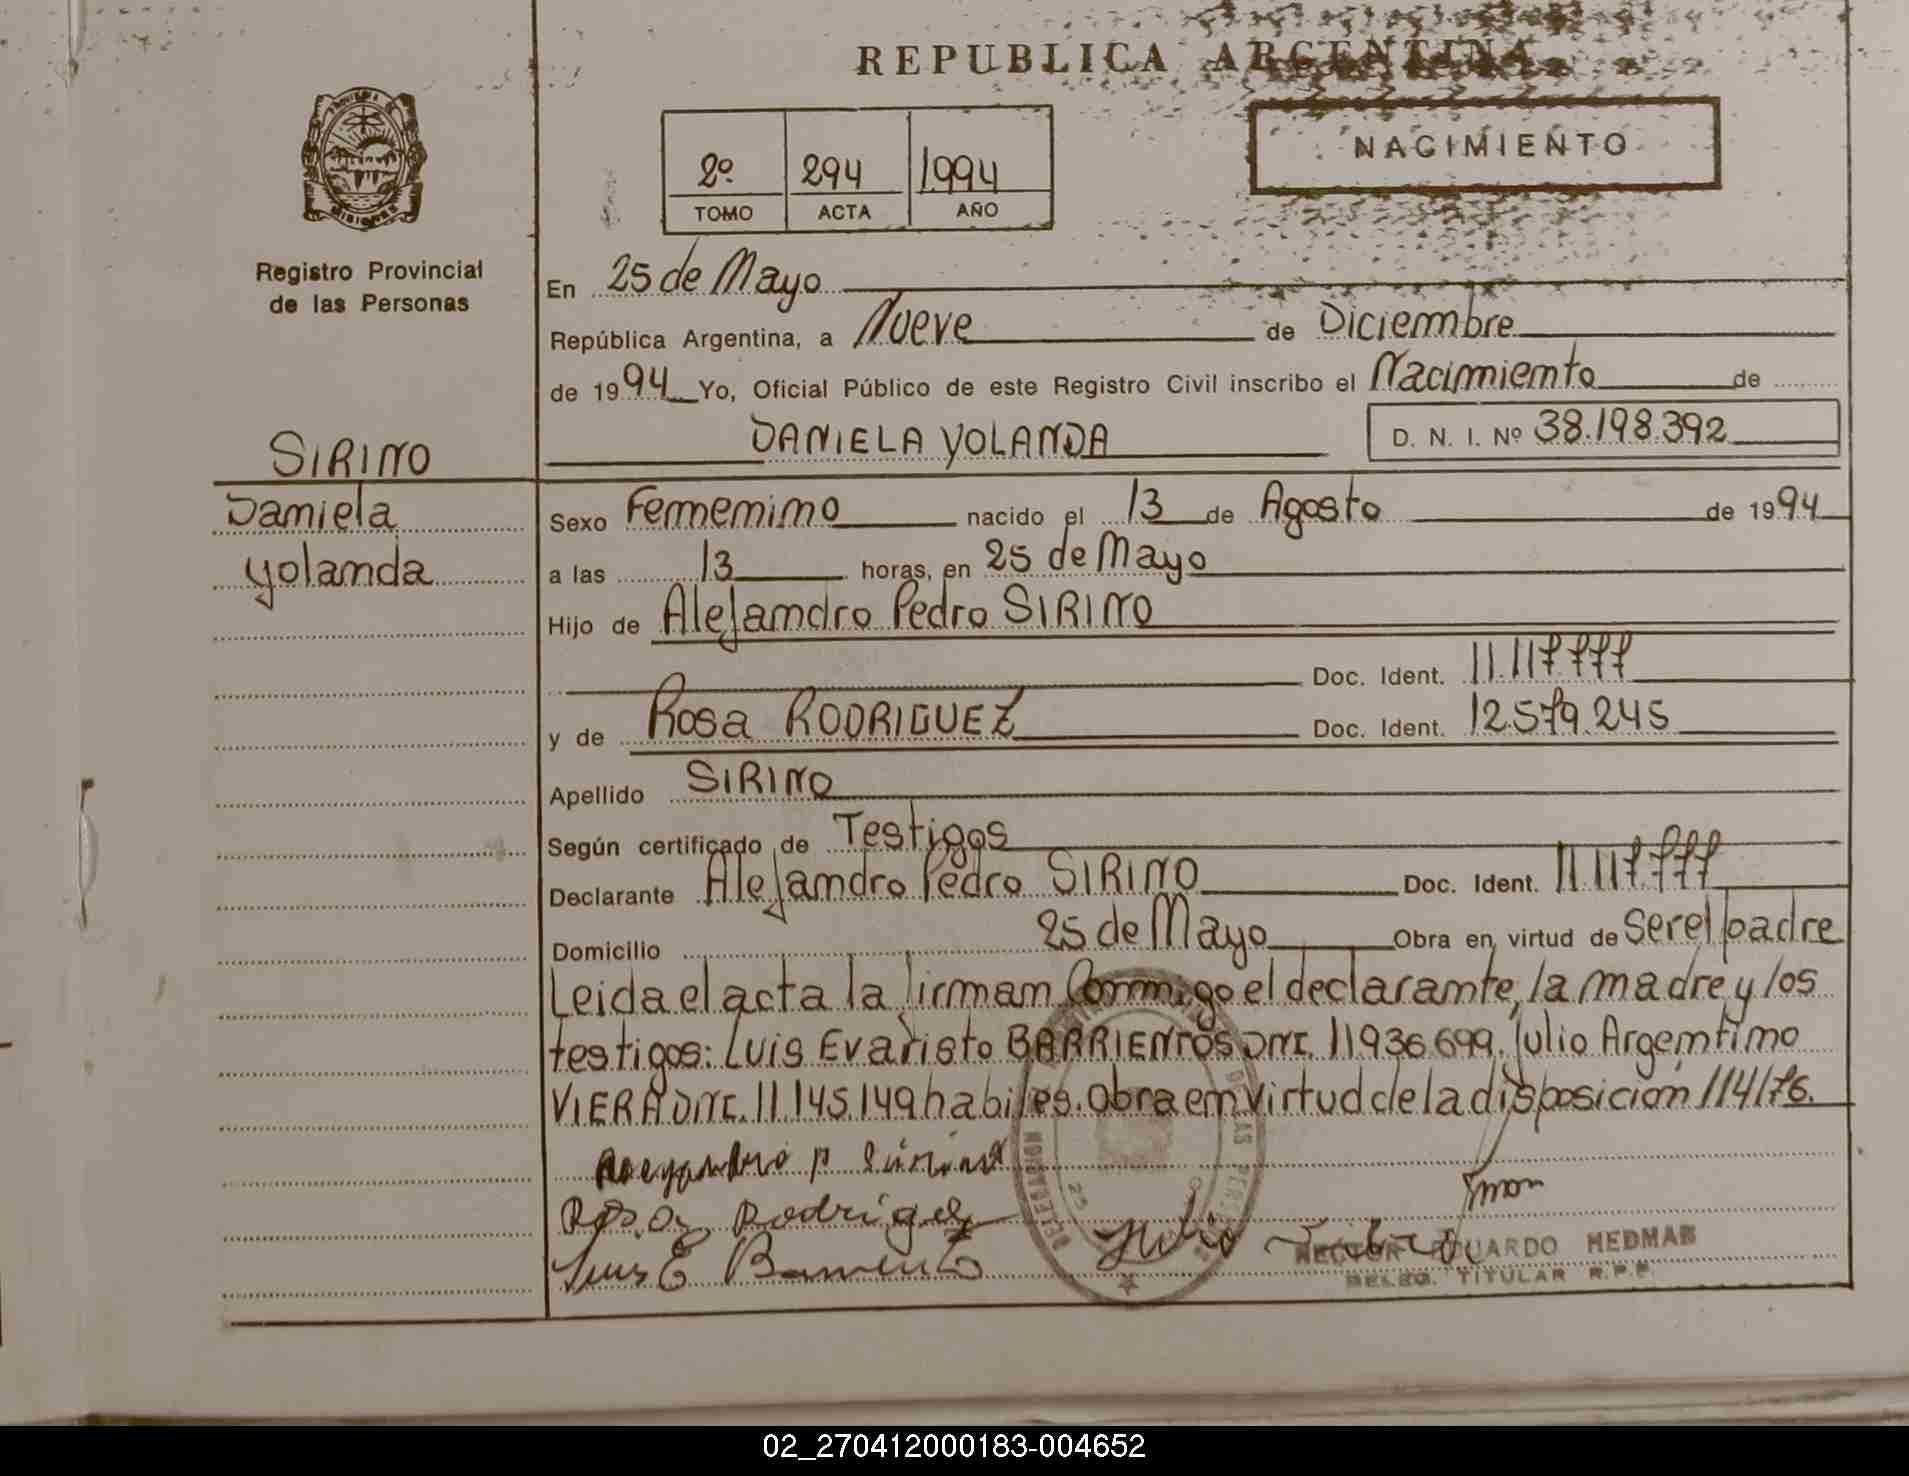 REPUBLICA ARGENTINA
NACIMIENTO
2º 294 1994
TOMO ACTA AÑO
MISIONES
Registro Provincial
de las Personas
En 25 de Mayo
República Argentina, a Nueve de Diciembre
de 1994 Yo, Oficial Público de este Registro Civil inscribo el Nacimiento de
DANIELA YOLANDA D. N. I. Nº 38.198.392
SIRINO
Daniela
Yolanda
Sexo Femenino nacido el 13 de Agosto de 1994
a las 13 horas, en 25 de Mayo
Hijo de Alejandro Pedro SIRINO
Doc. Ident. 11.117.777
y de Rosa RODRIGUEZ Doc. Ident. 12.579.245
Apellido SIRINO
Según certificado de Testigos
Declarante Alejandro Pedro SIRINO Doc. Ident. 11.117.777
Domicilio 25 de Mayo Obra en virtud de Ser el padre
Leida el acta la firman Conmigo el declarante, la madre y los
testigos: Luis Evaristo BARRIENTOS DNI. 11936.699. Julio Argentino
VIERA DNI. 11.145.149 habiles. Obra en Virtud de la disposición 114/76.
Alejandro P Sirino
Rosa Rodriguez
Luis E Barrientos Julio
HECTOR EDUARDO HEDMAN
DELEG. TITULAR R.P.P.
02_270412000183-004652